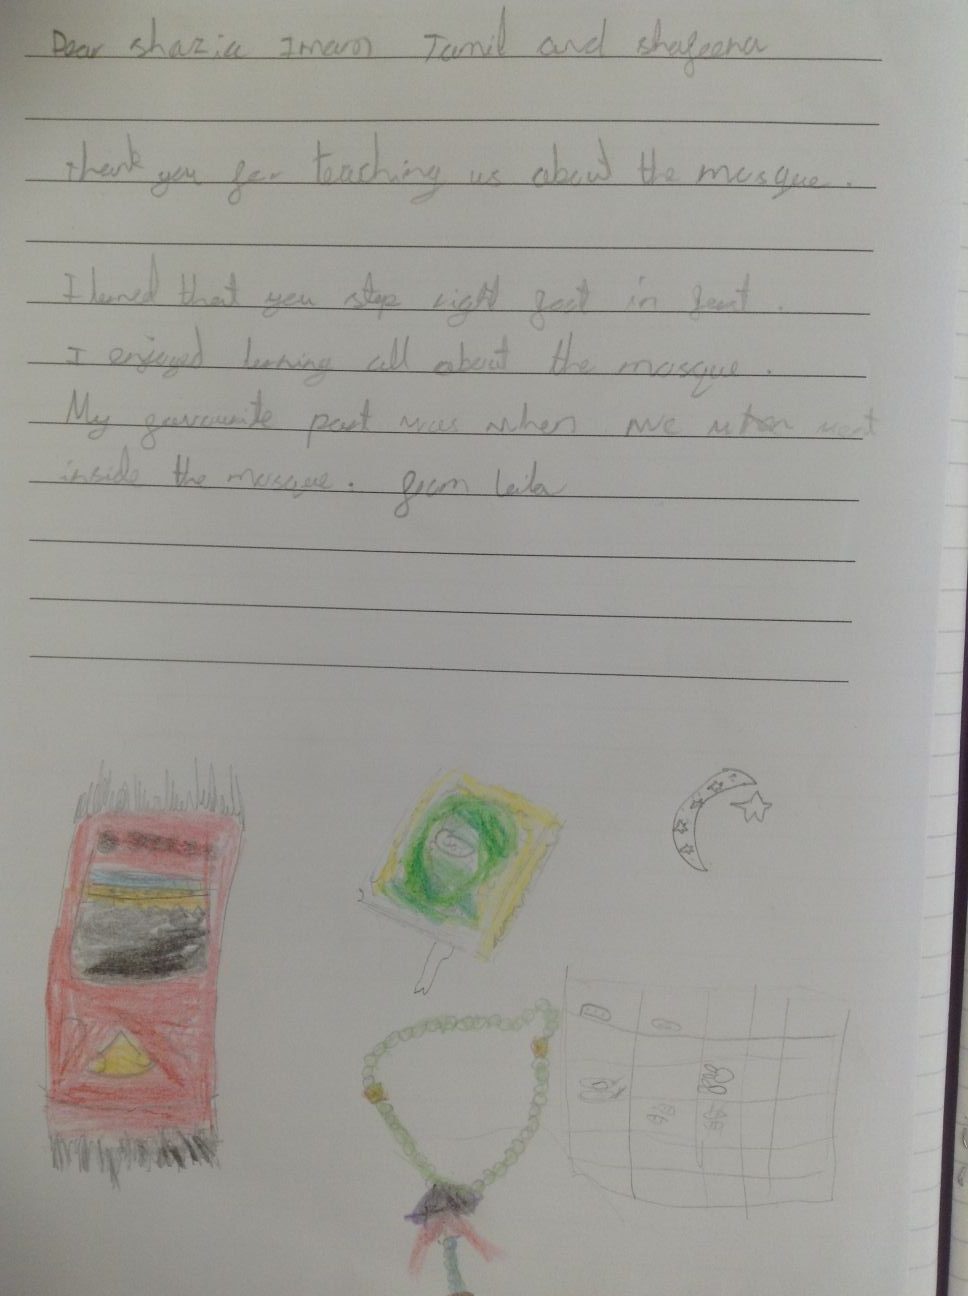 Dear shazia Imam Jamil and shafeena
thank you for teaching us about the mosque.
I lerned that you step right foot in ferst.
I enjoyed lerning all about the mosque.
My favourite part was when we when went
inside the mosque. from Leila